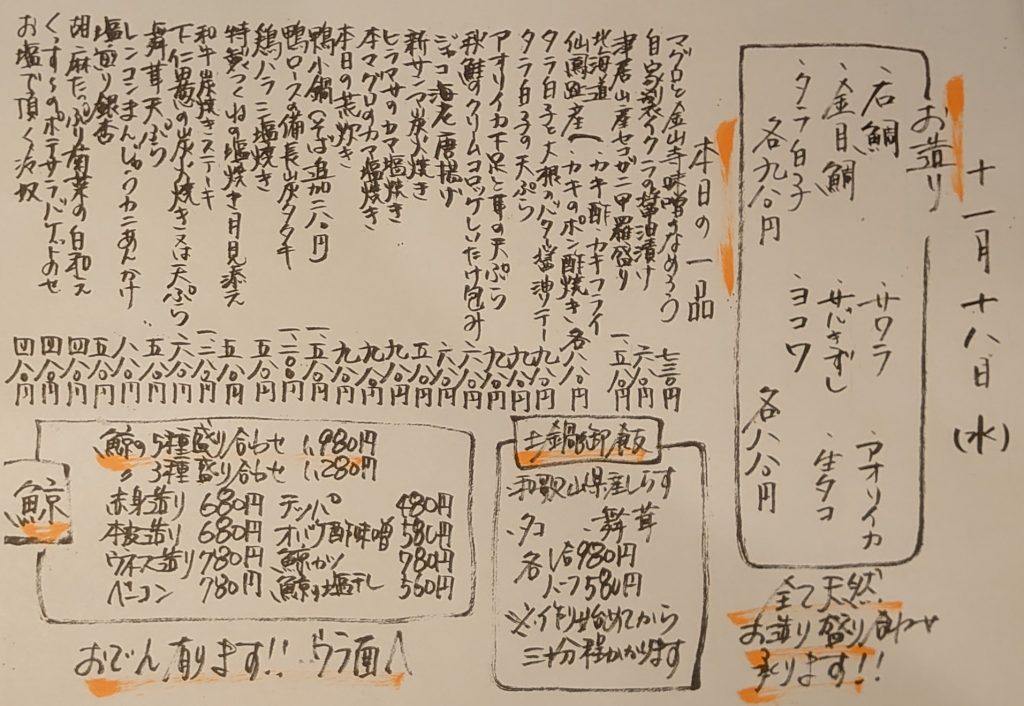 十一月十八日(水)
お造り
石鯛
金目鯛
タラ白子
各九八〇円
サワラ
サバきずし
ヨコワ
アオリイカ
生タコ
各八八〇円
全て天然
お造り盛り合わせ
承ります!!
本日の一品
マグロと金山寺味噌のなめろう 七三〇円
自家製イクラの醤油漬け 六八〇円
津居山産セコガニ甲羅盛り 一、五八〇円
北海道 カキ酢・カキフライ
仙鳳趾産 カキのポン酢焼き 各八八〇円
タラ白子と大根のバター醤油ソテー 九八〇円
タラ白子の天ぷら 九八〇円
アオリイカ下足と耳の天ぷら 九八〇円
秋鮭のクリームコロッケしいたけ包み 六八〇円
ジャコ海老唐揚げ 六八〇円
新サンマ炭火焼き 五八〇円
ヒラマサのカマ塩焼き 九八〇円
本マグロのカマ塩焼き 九八〇円
本日の荒炊き 九八〇円
鴨小鍋(そば追加二八〇円) 一、五八〇円
鴨ロースの備長炭タタキ 一、二〇〇円
鶏ハラミ塩焼き 五八〇円
特製つくねの塩焼き月見添え 五八〇円
和牛炭焼きステーキ 一、二八〇円
下仁田葱の炭火焼き又は天ぷら 六八〇円
舞茸天ぷら 五八〇円
レンコンまんじゅうカニあんかけ 八八〇円
塩煎り銀杏 五八〇円
胡麻たっぷり菊菜の白和え 四八〇円
くんすものポテサラバゲットのせ 四八〇円
お塩で頂く冷奴 四八〇円
土鍋御飯
和歌山県産しらす
タコ 舞茸
各1合980円
ハーフ580円
※作り始めてから
三十分程かかります
鯨
鯨の5種盛り合わせ 1,980円
〃 3種盛り合わせ 1,280円
赤身造り 680円 テッパ 480円
本皮造り 680円 オバケ酢味噌 580円
ウネス造り 780円 鯨カツ 780円
ベーコン 780円 鯨の塩干し 560円
おでん有ります!! ウラ面へ